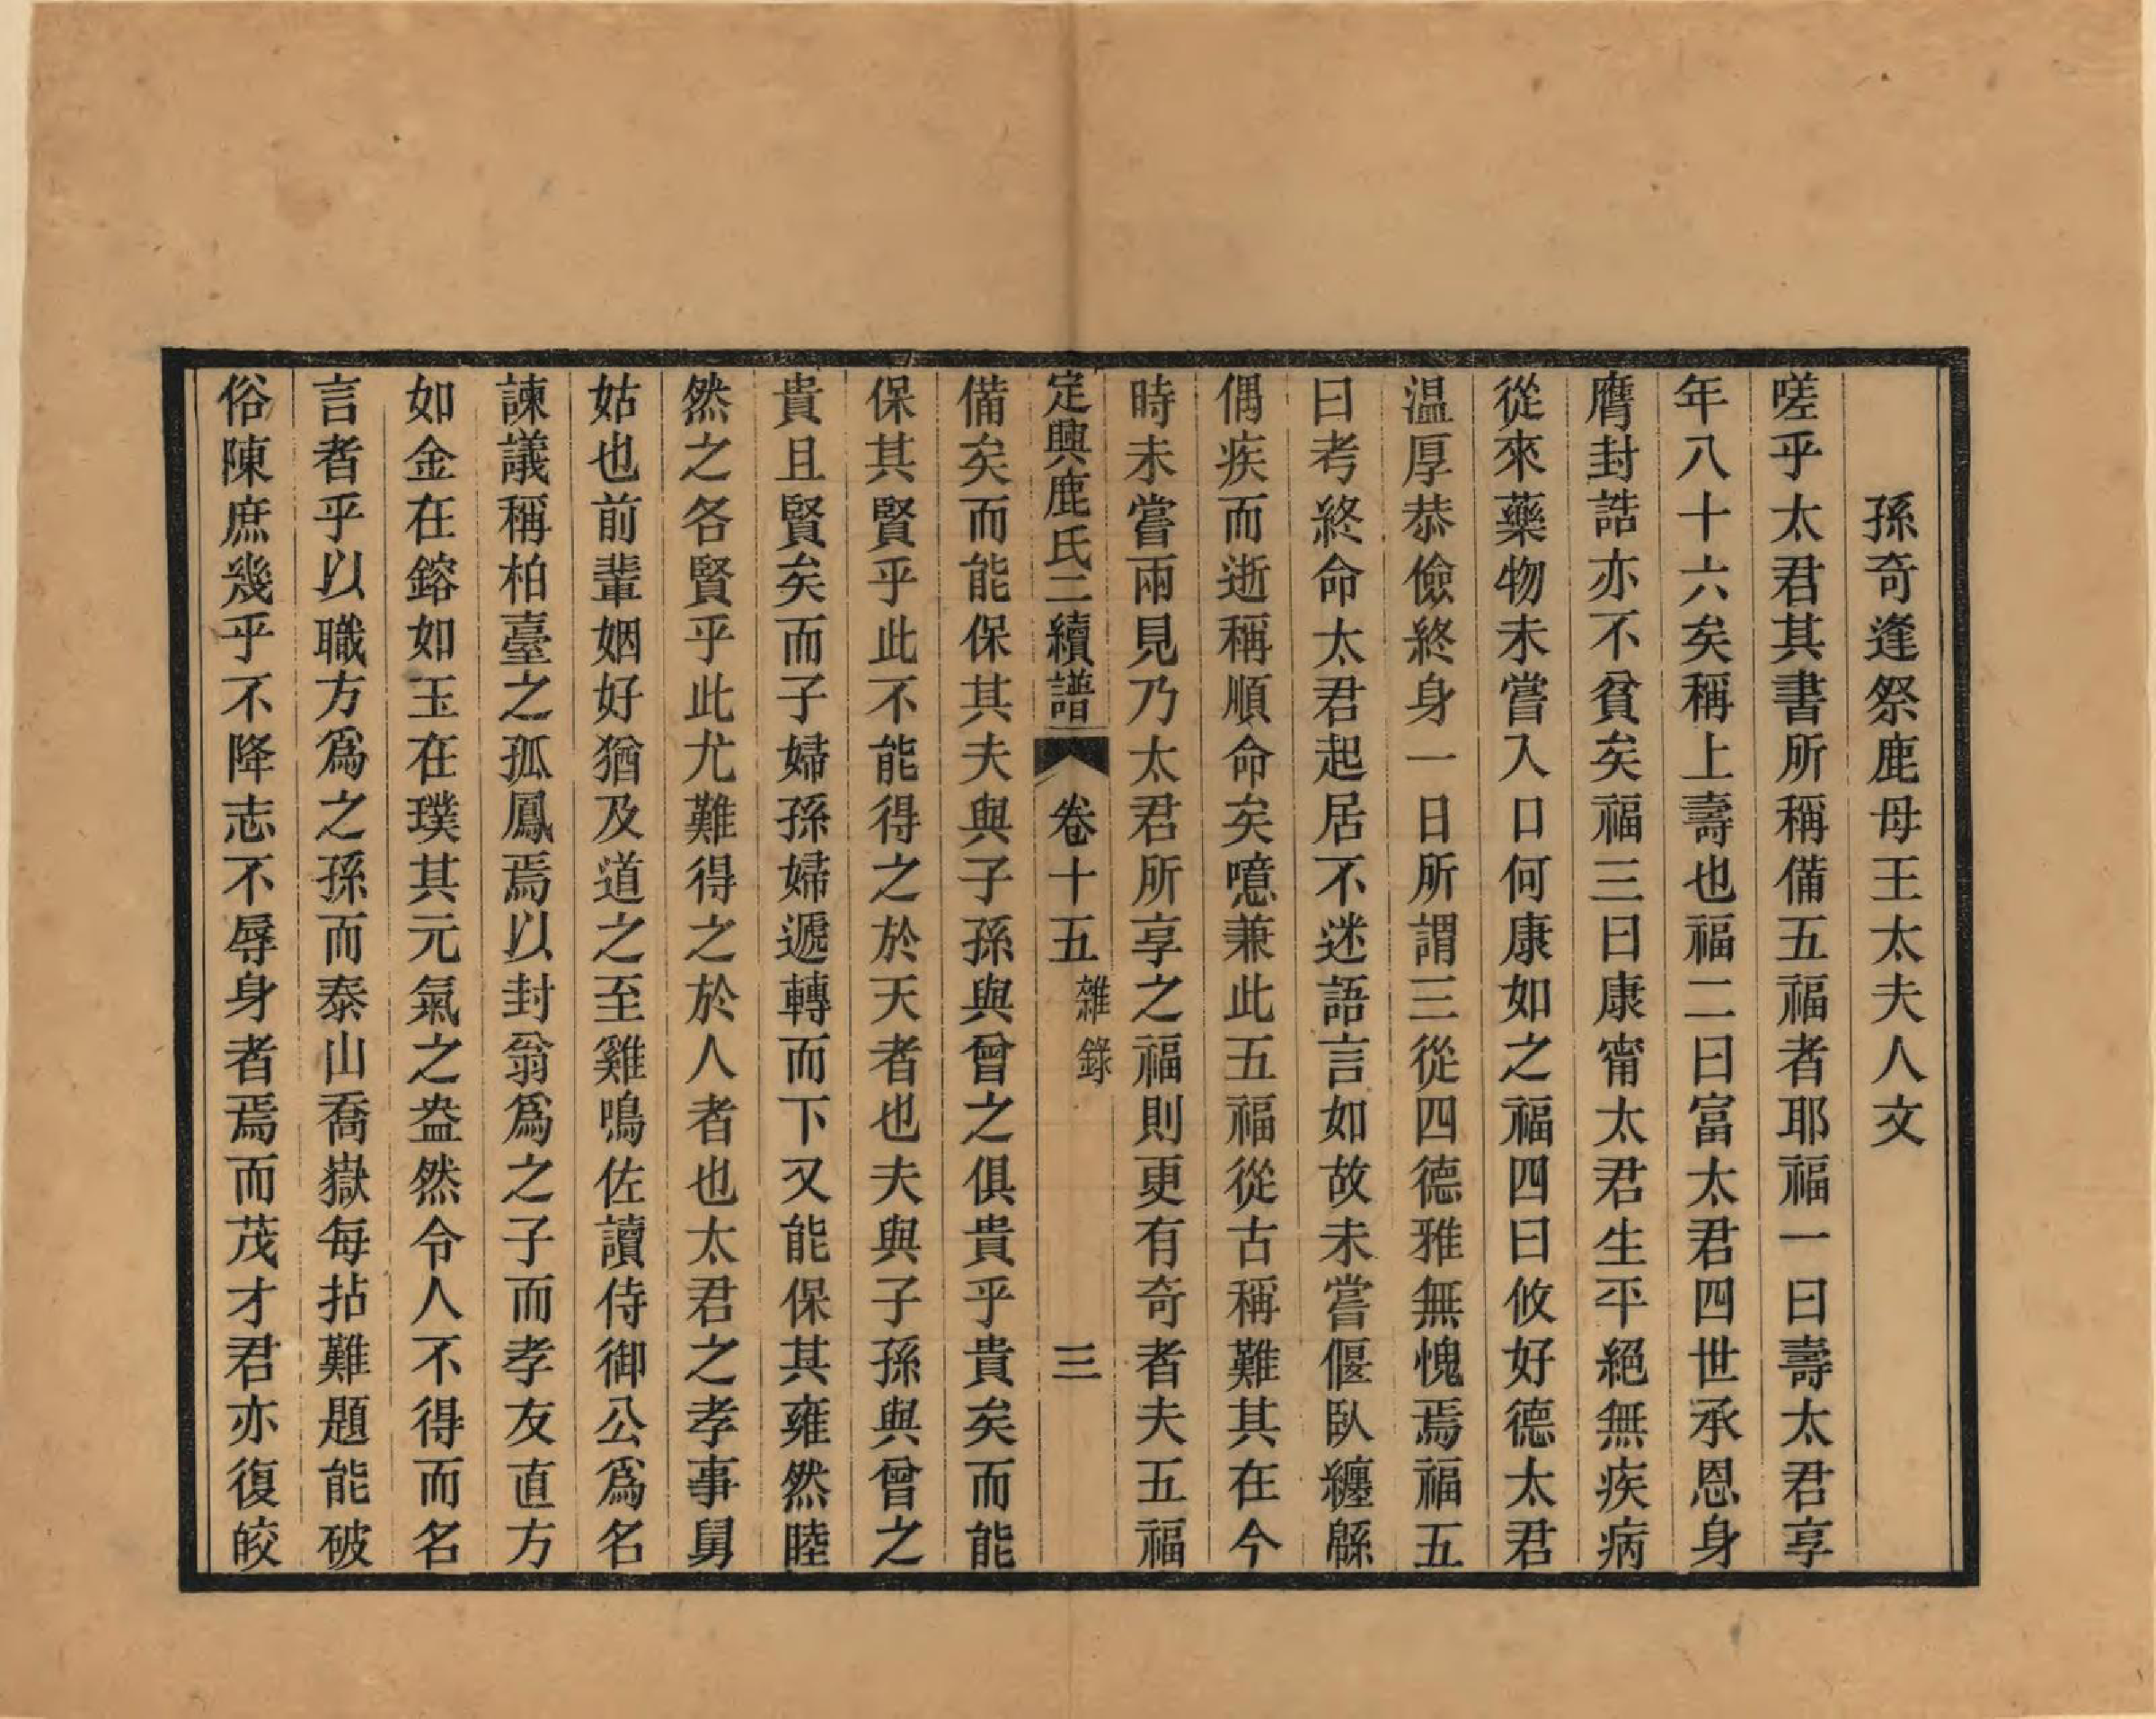 孫奇逢祭鹿母王太夫人文
嗟乎太君其書所稱備五福者耶福一曰壽太君享
年八十六矣稱上壽也福二曰富太君四世承恩身
膺封誥亦不貧矣福三曰康甯太君生平絕無疾病
從來藥物未嘗入口何康如之福四曰攸好德太君
温厚恭儉終身一日所謂三從四德雅無愧焉福五
曰考終命太君起居不迷語言如故未嘗偃臥纏緜
偶疾而逝稱順命矣噫兼此五福從古稱難其在今
時未嘗兩見乃太君所享之福則更有奇者夫五福
定興鹿氏二續譜 卷十五 雜錄 三
備矣而能保其夫與子孫與曾之俱貴乎貴矣而能
保其賢乎此不能得之於天者也夫與子孫與曾之
貴且賢矣而子婦孫婦遞轉而下又能保其雍然睦
然之各賢乎此尤難得之於人者也太君之孝事舅
姑也前輩姻好猶及道之至雞鳴佐讀侍御公爲名
諫議稱柏臺之孤鳳焉以封翁爲之子而孝友直方
如金在鎔如玉在璞其元氣之盎然令人不得而名
言者乎以職方爲之孫而泰山喬嶽每拈難題能破
俗陳庶幾乎不降志不辱身者焉而茂才君亦復皎